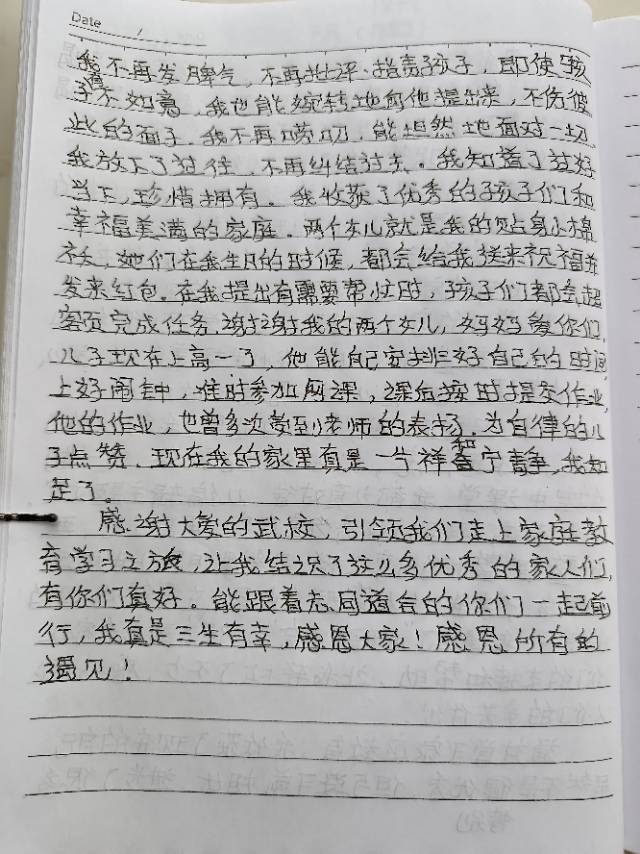 Date /
我不再发脾气，不再批评指责孩子，即使孩
子不如意，我也能婉转地向他提出来，不伤彼
此的面子。我不再唠叨，能坦然地面对一切。
我放下了过往，不再纠结过去。我知道了过好
当下，珍惜拥有。我收获了优秀的孩子们和
幸福美满的家庭。两个女儿就是我的贴身小棉
袄，她们在我生日的时候，都会给我送来祝福并
发来红包。在我提出有需要帮忙时，孩子们都会超
额完成任务。谢谢我的两个女儿，妈妈爱你们。
儿子现在上高一了，他能自己安排好自己的时间，
上好闹钟，准时参加网课，课后按时提交作业，
他的作业，也曾多次受到老师的表扬。为自律的儿
子点赞。现在我的家里真是一片祥和宁静，我知
足了。
感谢大爱的武校，引领我们走上家庭教
育学习之旅，让我结识了这么多优秀的家人们，
有你们真好。能跟着志同道合的你们一起前
行，我真是三生有幸，感恩大家！感恩所有的
遇见！